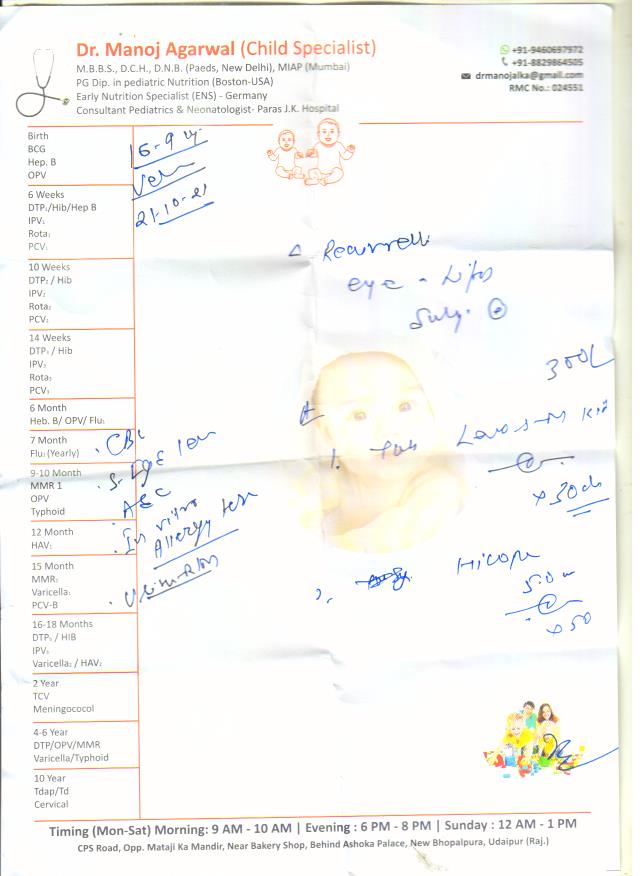 Dr. Manoj Agarwal (Child Specialist)
M.B.B.S., D.C.H., D.N.B. (Paeds, New Delhi), MIAP (Mumbai)
PG Dip. in pediatric Nutrition (Boston-USA)
Early Nutrition Specialist (ENS) - Germany
Consultant Pediatrics & Neonatologist- Paras J.K. Hospital
+91-9460697972
+91-8829864505
drmanojalka@gmail.com
RMC No.: 024551
Birth
BCG
Hep. B
OPV
6 Weeks
DTP₁/Hib/Hep B
IPV₁
Rota₁
PCV₁
10 Weeks
DTP₂ / Hib
IPV₂
Rota₂
PCV₂
14 Weeks
DTP₃ / Hib
IPV₃
Rota₃
PCV₃
6 Month
Heb. B/ OPV/ Flu₁
7 Month
Flu₂ (Yearly)
9-10 Month
MMR 1
OPV
Typhoid
12 Month
HAV₁
15 Month
MMR₂
Varicella₁
PCV-B
16-18 Months
DTP₄ / HIB
IPV₄
Varicella₂ / HAV₂
2 Year
TCV
Meningococol
4-6 Year
DTP/OPV/MMR
Varicella/Typhoid
10 Year
Tdap/Td
Cervical
21-10-21
eye - Lips
CBC
AEC
In vitro
Allergy test
1. Tab
x 30
2.
x 50
Timing (Mon-Sat) Morning: 9 AM - 10 AM | Evening : 6 PM - 8 PM | Sunday : 12 AM - 1 PM
CPS Road, Opp. Mataji Ka Mandir, Near Bakery Shop, Behind Ashoka Palace, New Bhopalpura, Udaipur (Raj.)